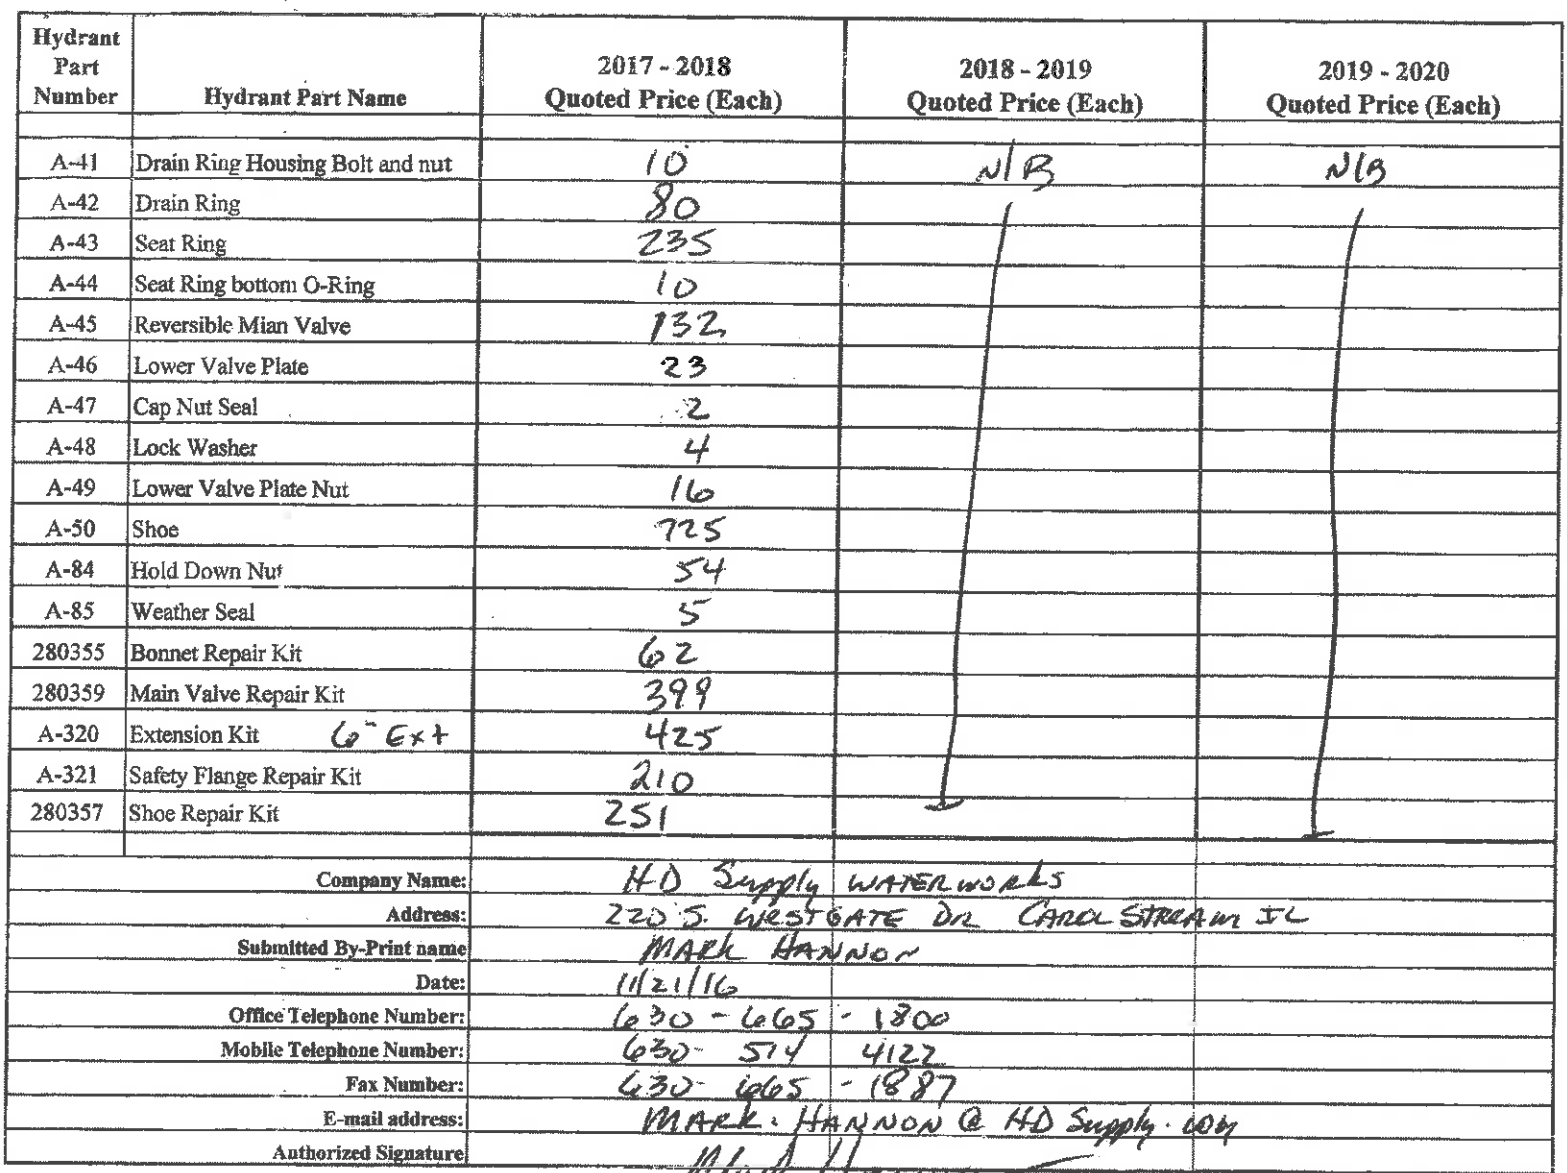 Hydrant Part Number Hydrant Part Name 2017 - 2018 Quoted Price (Each) 2018 - 2019 Quoted Price (Each) 2019 - 2020 Quoted Price (Each)
A-41 Drain Ring Housing Bolt and nut 10 N/B N/B
A-42 Drain Ring 80
A-43 Seat Ring 235
A-44 Seat Ring bottom O-Ring 10
A-45 Reversible Mian Valve 132
A-46 Lower Valve Plate 23
A-47 Cap Nut Seal 2
A-48 Lock Washer 4
A-49 Lower Valve Plate Nut 16
A-50 Shoe 725
A-84 Hold Down Nut 54
A-85 Weather Seal 5
280355 Bonnet Repair Kit 62
280359 Main Valve Repair Kit 399
A-320 Extension Kit 6" Ext 425
A-321 Safety Flange Repair Kit 210
280357 Shoe Repair Kit 251
Company Name: HD Supply WATERWORKS
Address: 220 S. WESTGATE DR CAROL STREAM IL
Submitted By-Print name MARK HANNON
Date: 11/21/16
Office Telephone Number: 630-665-1800
Mobile Telephone Number: 630- 514 4122
Fax Number: 630-665-1887
E-mail address: MARK.HANNON@HDSupply.com
Authorized Signature